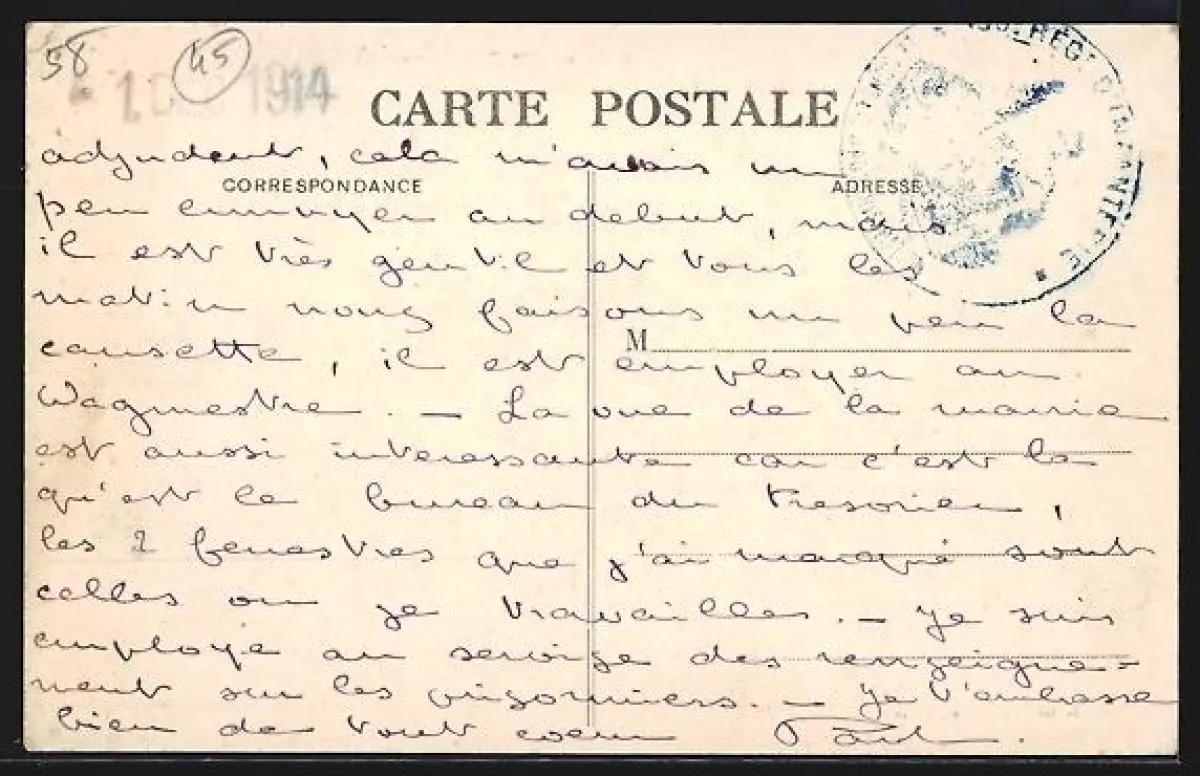 58
45
1914
CARTE POSTALE
RÉGT D'INFANTERIE *
CORRESPONDANCE
ADRESSE
M
adjudant, cela m'avais un
peu ennuyer au debut, mais
il est très gentil et tous les
matin nous faisons un peu la
causette, il est employer au
Wagmestre. — La vue de la mairie
est aussi interessante car c'est la
qu'est le bureau du tresorier,
les 2 fenestres que j'ai marqué sont
celles ou je travailles. — Je suis
employé au servize des renzeigne-
ment sur les prizonniers. — Je t'embrasse
bien de tout coeur Paul.